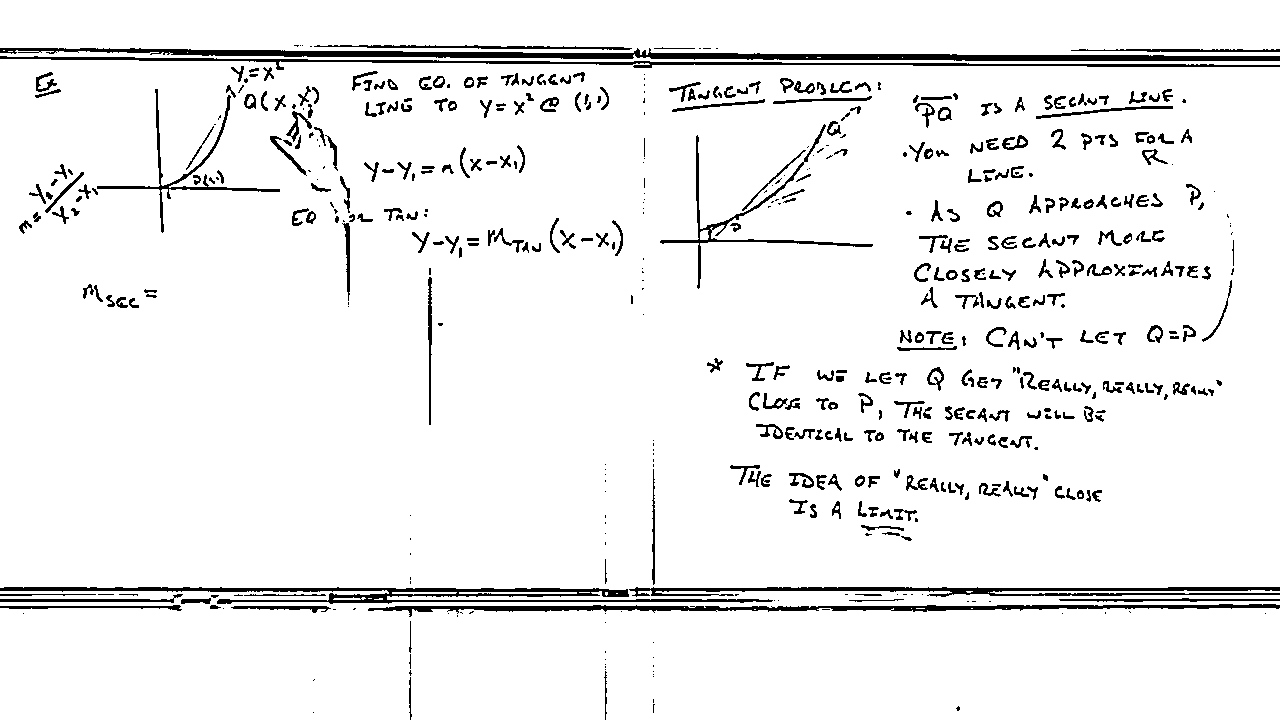 Ex
y=x²
Q(x,x²)
P(1,1)
1
m = y₂-y₁ / x₂-x₁
m_SEC =
FIND EQ. OF TANGENT
LINE TO y=x² @ (1,1)
y-y₁ = m(x-x₁)
EQ FOR TAN:
y-y₁ = m_TAN (x-x₁)
TANGENT PROBLEM:
Q
P
"PQ" IS A SECANT LINE.
•YOU NEED 2 PTS FOR A
LINE.
• AS Q APPROACHES P,
THE SECANT MORE
CLOSELY APPROXIMATES
A TANGENT.
NOTE: CAN'T LET Q=P
* IF WE LET Q GET "REALLY, REALLY, REALLY"
CLOSE TO P, THE SECANT WILL BE
IDENTICAL TO THE TANGENT.
THE IDEA OF "REALLY, REALLY" CLOSE
IS A LIMIT.